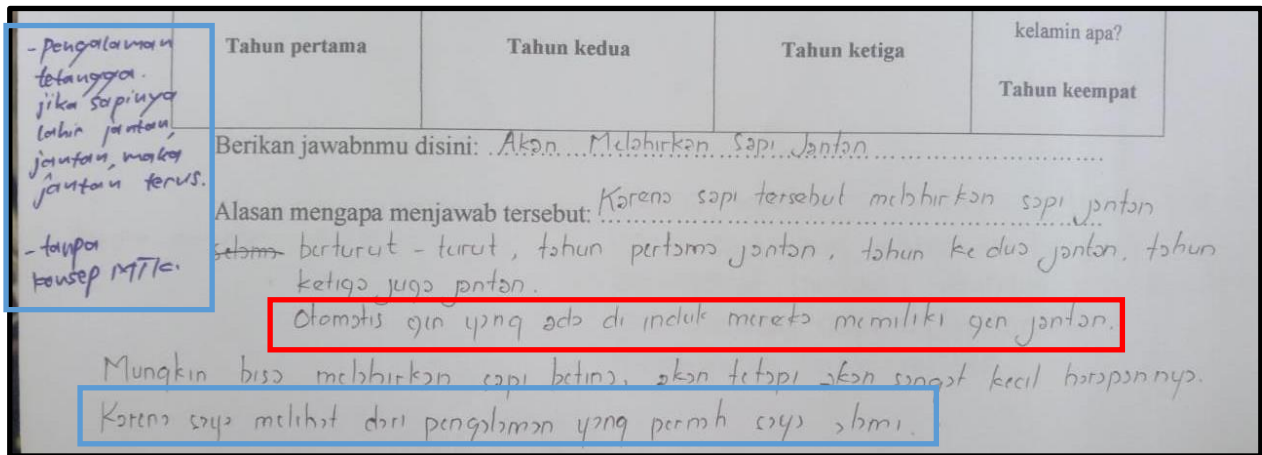 - Pengalaman
tetangga.
jika sapinya
lahir jantan
jantan, maka
jantan terus.
- tanpa
konsep MTK.
Tahun pertama
Tahun kedua
Tahun ketiga
kelamin apa?
Tahun keempat
Berikan jawabnmu disini: Akan Melahirkan Sapi Jantan
Alasan mengapa menjawab tersebut: Karena sapi tersebut melahirkan sapi jantan
selama berturut - turut, tahun pertama jantan, tahun kedua jantan, tahun
ketiga juga jantan.
Otomatis gen yang ada di induk mereka memiliki gen jantan.
Mungkin bisa melahirkan sapi betina, akan tetapi akan sangat kecil harapannya.
Karena saya melihat dari pengalaman yang pernah saya alami.